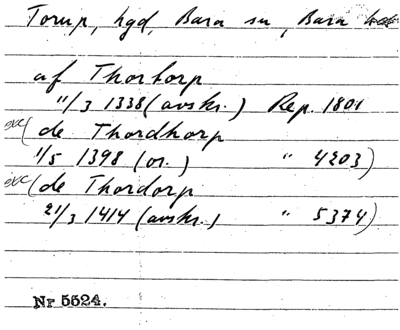 Torup, hgd, Bara sn, Bara hd
af Thortorp
11/3 1338 (avskr.) Rep. 1801
exc (de Thordhorp
1/5 1398 (or.) " 4203)
exc (de Thordorp
21/3 1414 (avskr.) " 5374)
Nr 5524.